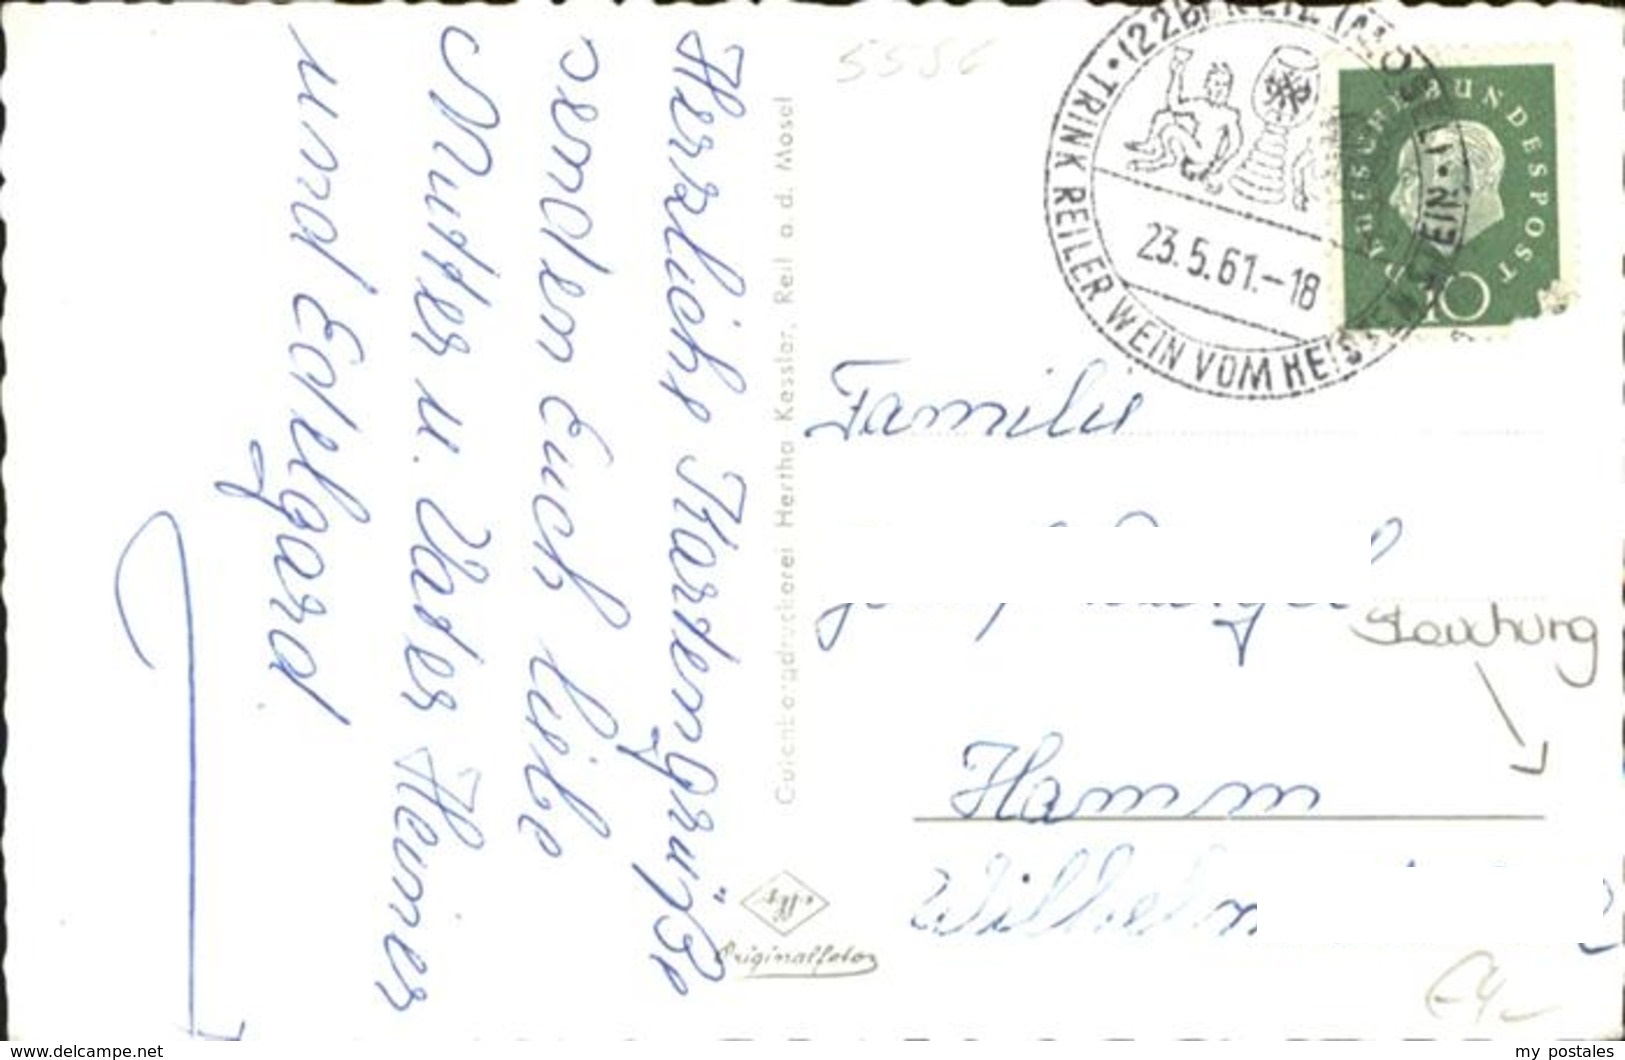 Herzliche Kartengrüße
senden Euch liebe
Mutter u. Vater Heiner
und Edelgard.
Gutenbergdruckerei Hertha Kessler, Reil a.d. Mosel
Originalfoto
5556
(22b) REIL (MOSEL)
TRINK REILER WEIN VOM HEISSEN STEIN
23.5.61.-18
DEUTSCHE BUNDESPOST
10
Familie
Hamm
www.delcampe.net
my postales